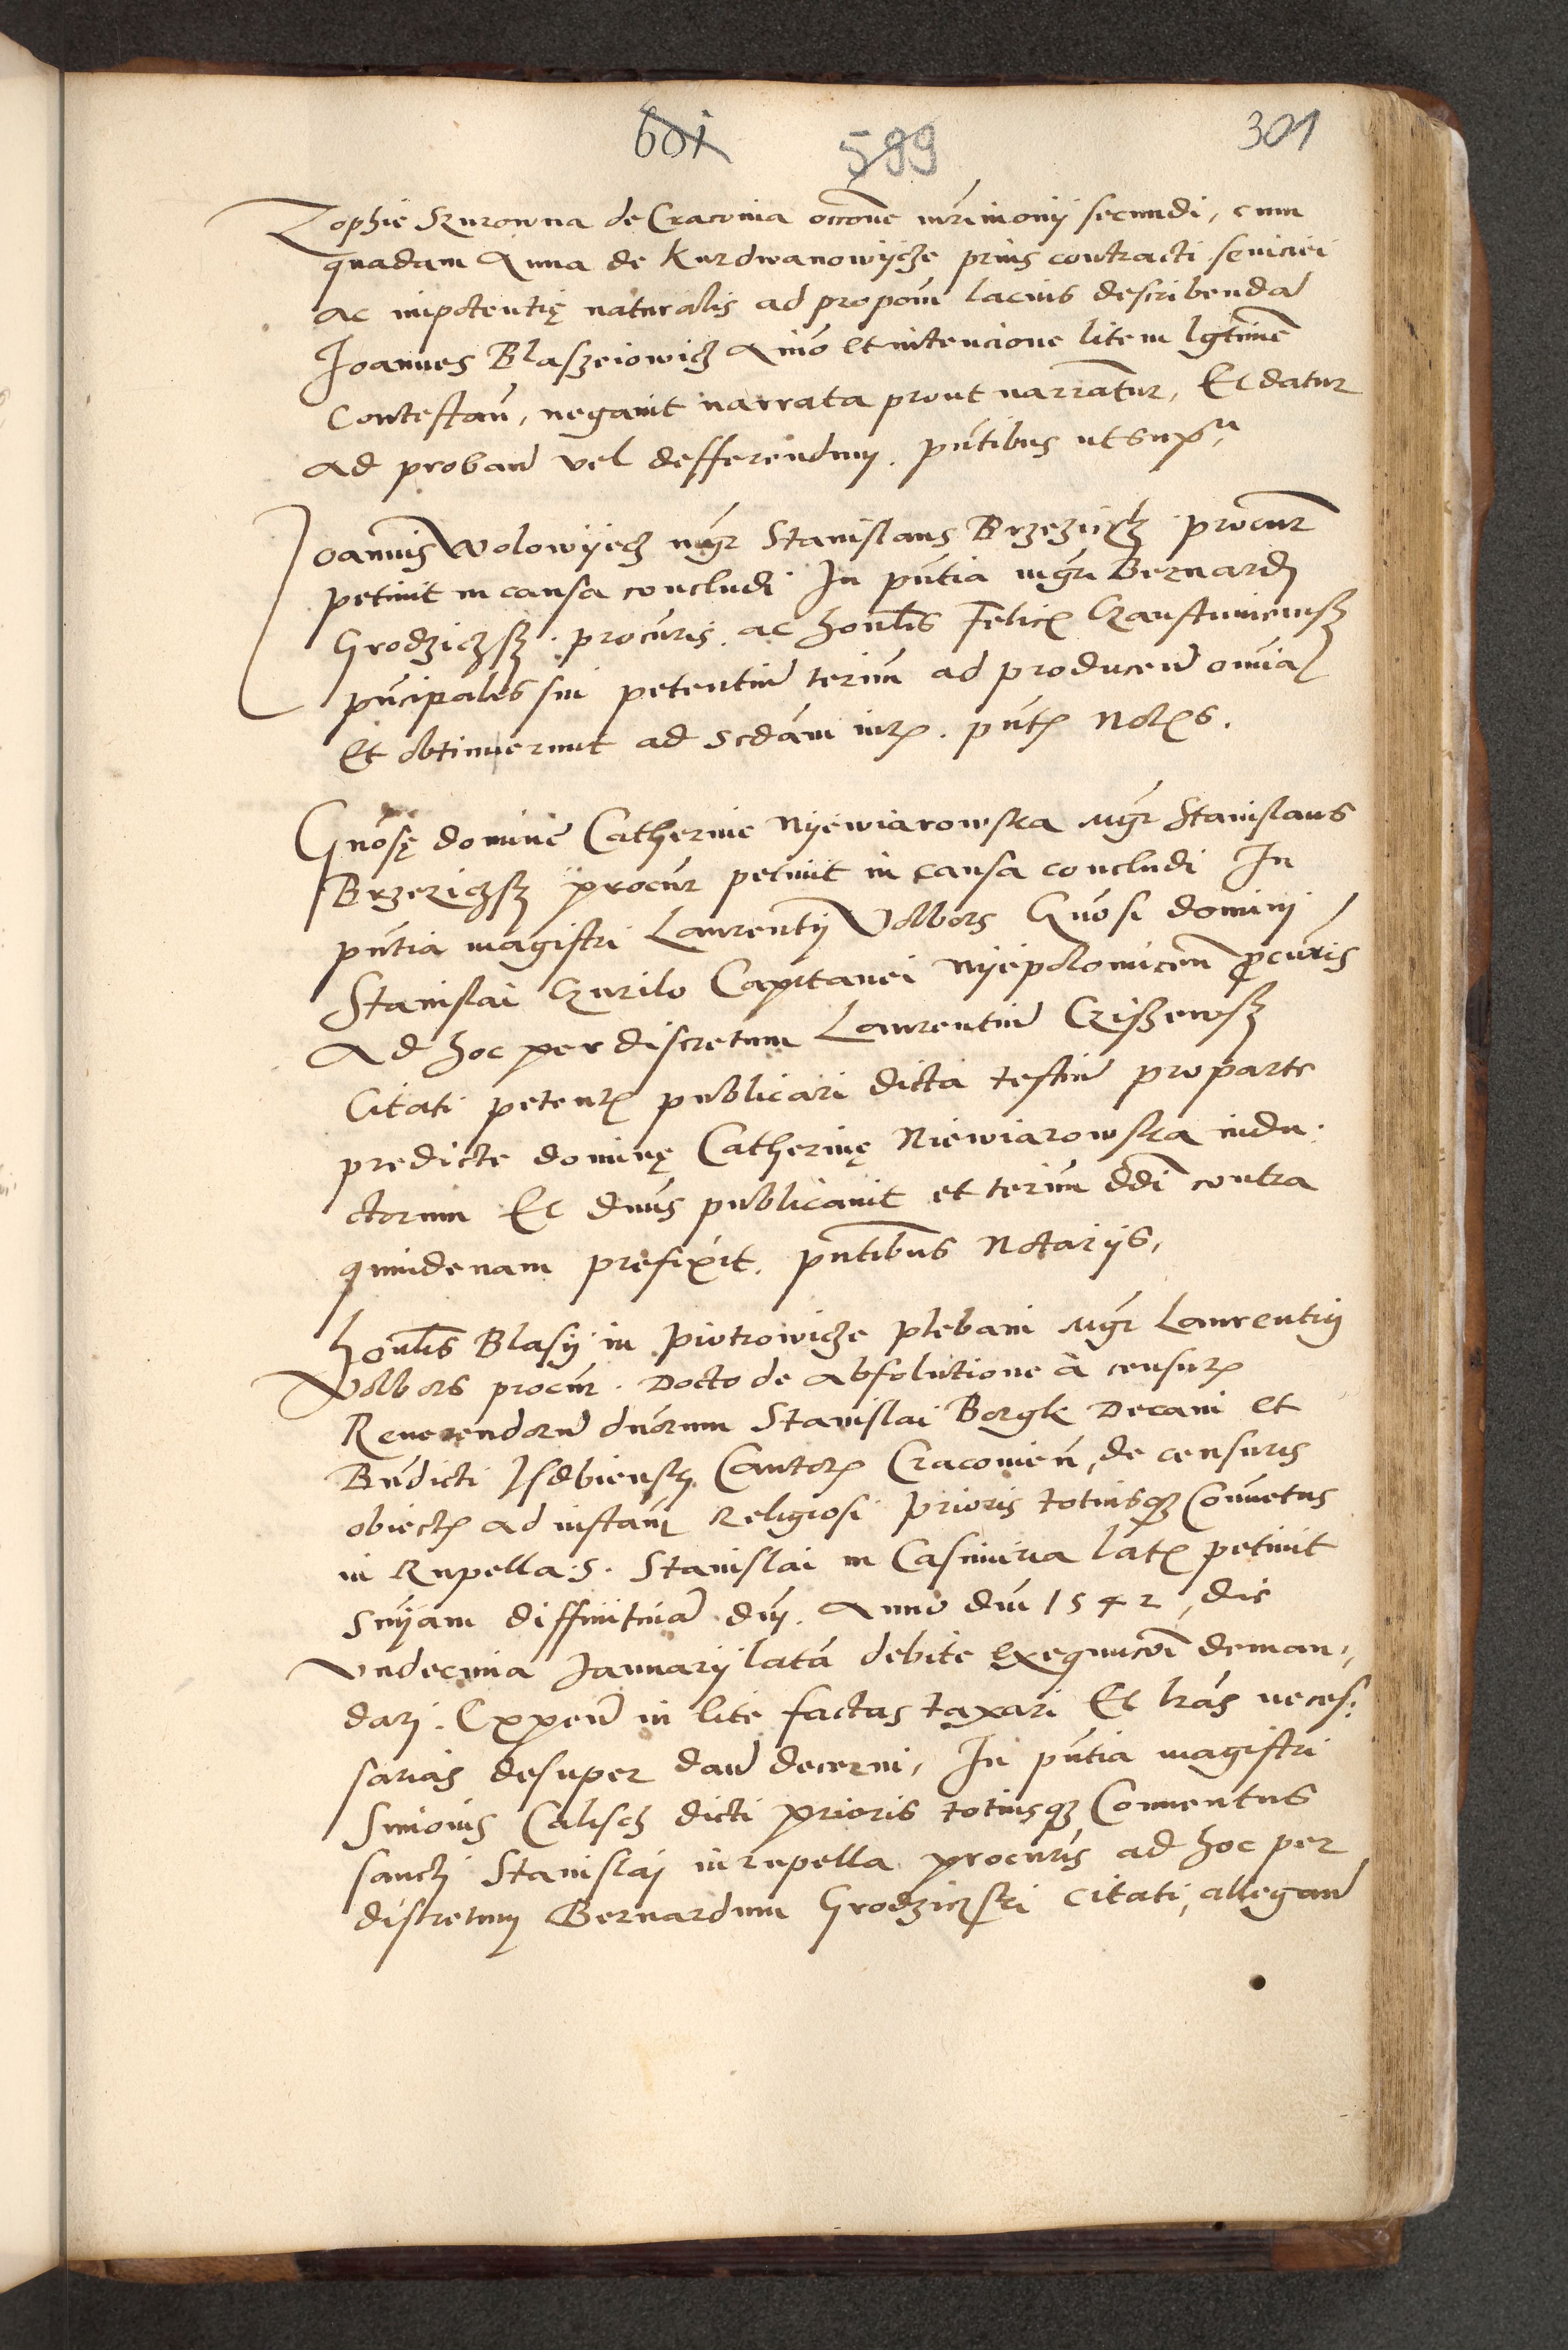 601 599 301
Zophie Kurowna de Cracovia occone mrimonij secundi, cum
quadam Anna de Kurdwanowijcze prius contracti seviciei
ac impotentię naturalis ad propom lacius describenda
Joannes Blaszeiowicz Animo et intencione litem lgtime
Contestan, negavit narrata prout narrantur, Et datur
ad proband vel defferendum. pntibus ut supra
Joannis Wolowijecz mgr Stanislaus Brzeziczky procur
petivit in causa concludi In pntia mgri Bernardi
Grodziczsky procuris. ac honblis Felicis
principales sui petentium terim ad producend omnia
Et obtinuerunt ad scdam jur. pntz Notariis.
Gnosę domine Catherine Nijewiarowska Mgr Stanislaus
Brzeziczsky procur petivit in causa concludi In
pntia magistri Laurentij Volbors Gnosi domini
Stanislai Czurilo Capitanei Nijepolomicen procuris
Ad hoc per discretum Laurentium Cziszewsky
Citati petentis publicari dicta testium pro parte
predicte dominę Catherinę Niewiarowska indu-
ctorum Et dnus publicavit et terim ddi contra
quindenam prefixit. pntibus Notarijs,
honblis Blasij in Piotrowicze plebani Mgr Laurentij
Volbors procur. Docto de absolutione à censuris
Reverendorum dnorum Stanislai Borgk Decani et
Bndicti Isdbiensky Cantoris Cracovien, de censuris
obiectis ad instam Religiosi Prioris totiusqz Conventus
in Rupella S. Stanislai in Casimiria latis petivit
Snijam diffinitivam dni. Anno dni 1542, die
Undecima Januarij latam debite exequucoi deman-
dari. Expens in lite factas taxari Et lras neces-
sarias desuper dand decerni, In pntia magistri
Simonis Calisch dicti prioris totiusqz Conventus
sancti Stanislaj in rupella procuris ad hoc per
discretum Bernardum Grodziczski citati, allegand